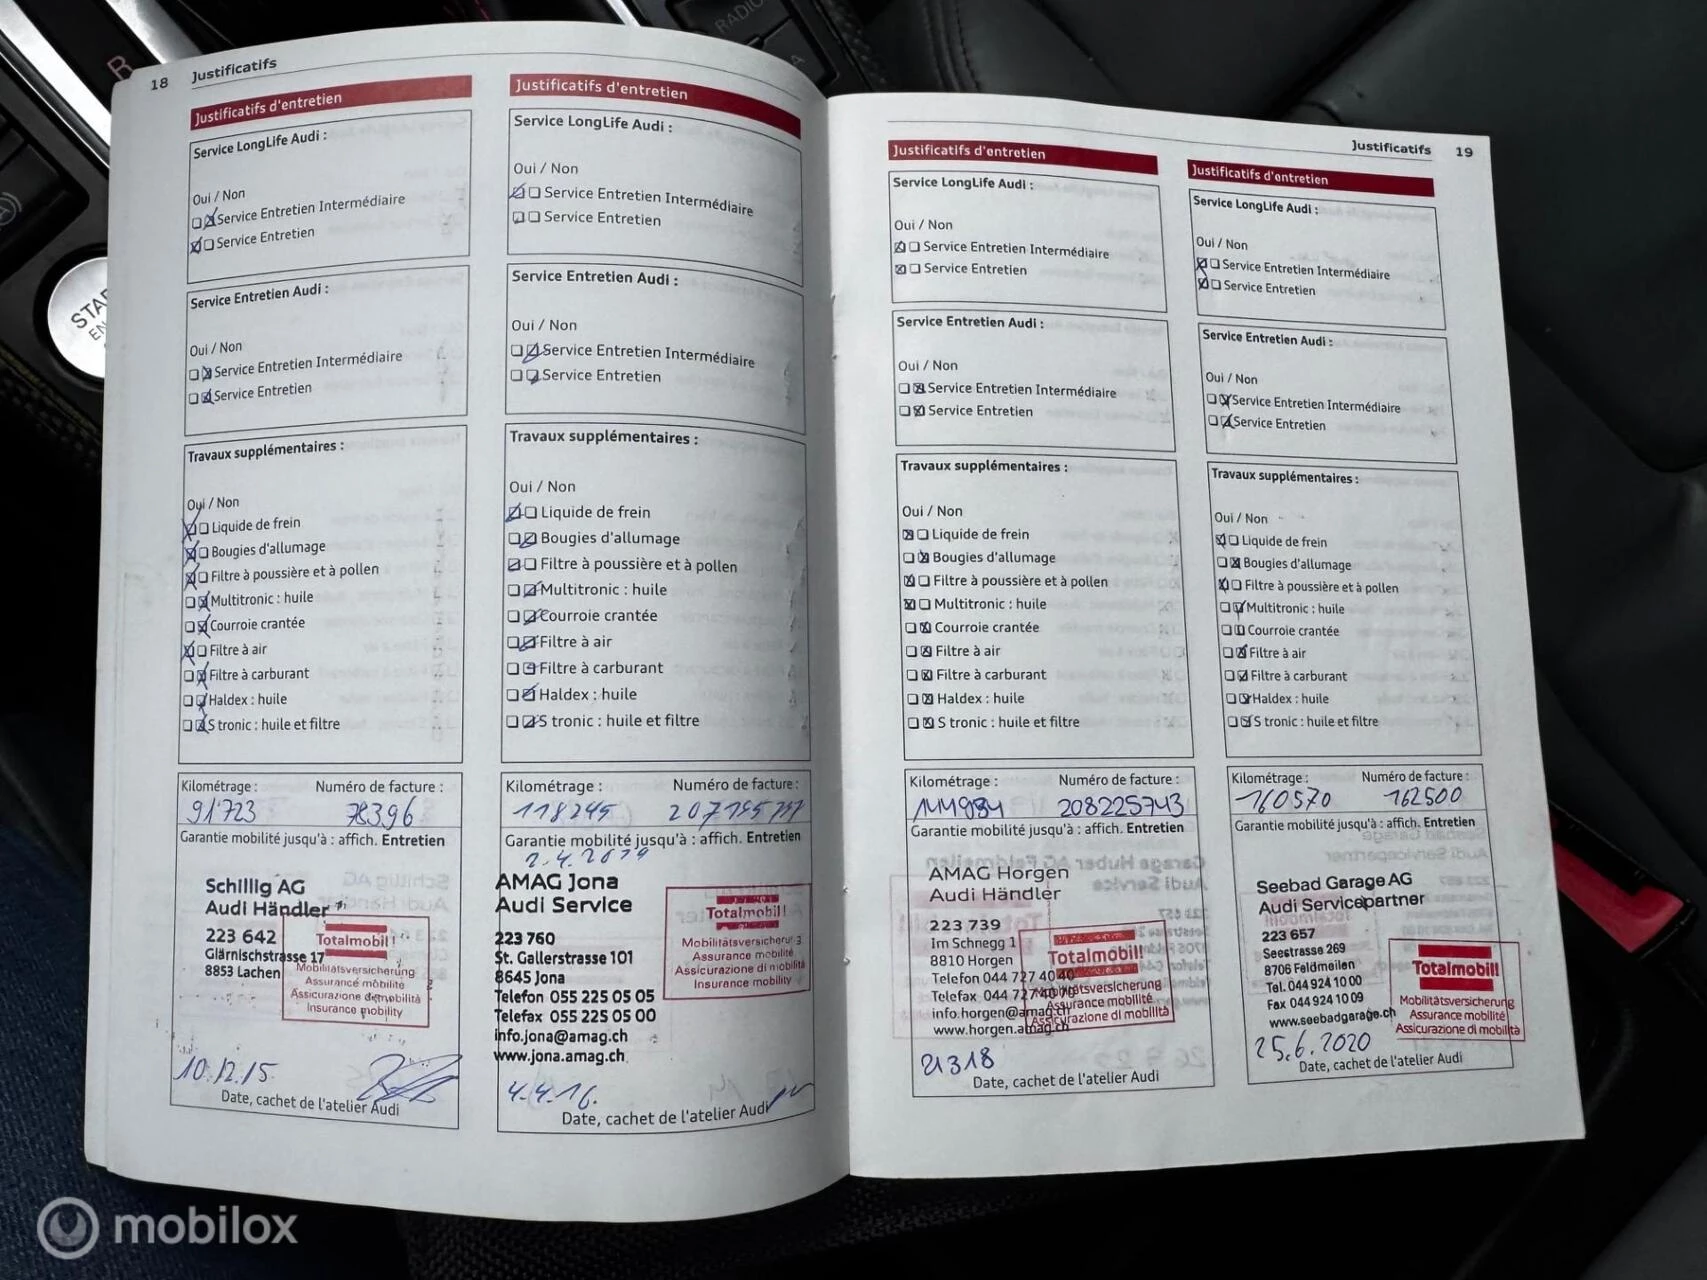 18 Justificatifs
Justificatifs d'entretien
Service LongLife Audi :
Oui / Non
Service Entretien Intermédiaire
Service Entretien
Service Entretien Audi :
Oui / Non
Service Entretien Intermédiaire
Service Entretien
Travaux supplémentaires :
Oui / Non
Liquide de frein
Bougies d'allumage
Filtre à poussière et à pollen
Multitronic : huile
Courroie crantée
Filtre à air
Filtre à carburant
Haldex : huile
S tronic : huile et filtre
Kilométrage : Numéro de facture :
91'723 78396
Garantie mobilité jusqu'à : affich. Entretien
Schillig AG
Audi Händler
223 642
Glärnischstrasse 17
8853 Lachen
Totalmobil!
Mobilitätsversicherung
Assurance mobilité
Assicurazione di mobilità
Insurance mobility
10.12.15
Date, cachet de l'atelier Audi
Justificatifs d'entretien
Service LongLife Audi :
Oui / Non
Service Entretien Intermédiaire
Service Entretien
Service Entretien Audi :
Oui / Non
Service Entretien Intermédiaire
Service Entretien
Travaux supplémentaires :
Oui / Non
Liquide de frein
Bougies d'allumage
Filtre à poussière et à pollen
Multitronic : huile
Courroie crantée
Filtre à air
Filtre à carburant
Haldex : huile
S tronic : huile et filtre
Kilométrage : Numéro de facture :
118245
Garantie mobilité jusqu'à : affich. Entretien
AMAG Jona
Audi Service
223 760
St. Gallerstrasse 101
8645 Jona
Telefon 055 225 05 05
Telefax 055 225 05 00
info.jona@amag.ch
www.jona.amag.ch
Totalmobil!
Assurance mobilité
Assicurazione di mobilità
Insurance mobility
4.4.16.
Date, cachet de l'atelier Audi
Justificatifs 19
Justificatifs d'entretien
Service LongLife Audi :
Oui / Non
Service Entretien Intermédiaire
Service Entretien
Service Entretien Audi :
Oui / Non
Service Entretien Intermédiaire
Service Entretien
Travaux supplémentaires :
Oui / Non
Liquide de frein
Bougies d'allumage
Filtre à poussière et à pollen
Multitronic : huile
Courroie crantée
Filtre à air
Filtre à carburant
Haldex : huile
S tronic : huile et filtre
Kilométrage : Numéro de facture :
144984 208225743
Garantie mobilité jusqu'à : affich. Entretien
AMAG Horgen
Audi Händler
223 739
Im Schnegg 1
8810 Horgen
Telefon 044 727 40 40
Telefax 044 727 40 70
info.horgen@amag.ch
www.horgen.amag.ch
Totalmobil!
Mobilitätsversicherung
Assurance mobilité
Assicurazione di mobilità
21318
Date, cachet de l'atelier Audi
Justificatifs d'entretien
Service LongLife Audi :
Oui / Non
Service Entretien Intermédiaire
Service Entretien
Service Entretien Audi :
Oui / Non
Service Entretien Intermédiaire
Service Entretien
Travaux supplémentaires :
Oui / Non
Liquide de frein
Bougies d'allumage
Filtre à poussière et à pollen
Multitronic : huile
Courroie crantée
Filtre à air
Filtre à carburant
Haldex : huile
S tronic : huile et filtre
Kilométrage : Numéro de facture :
160570 162500
Garantie mobilité jusqu'à : affich. Entretien
Seebad Garage AG
Audi Servicepartner
223 657
Seestrasse 269
8706 Feldmeilen
Tel. 044 924 10 00
Fax 044 924 10 09
www.seebadgarage.ch
Totalmobil!
Mobilitätsversicherung
Assurance mobilité
Assicurazione di mobilità
25.6.2020
Date, cachet de l'atelier Audi
R
RADIO
START
mobilox